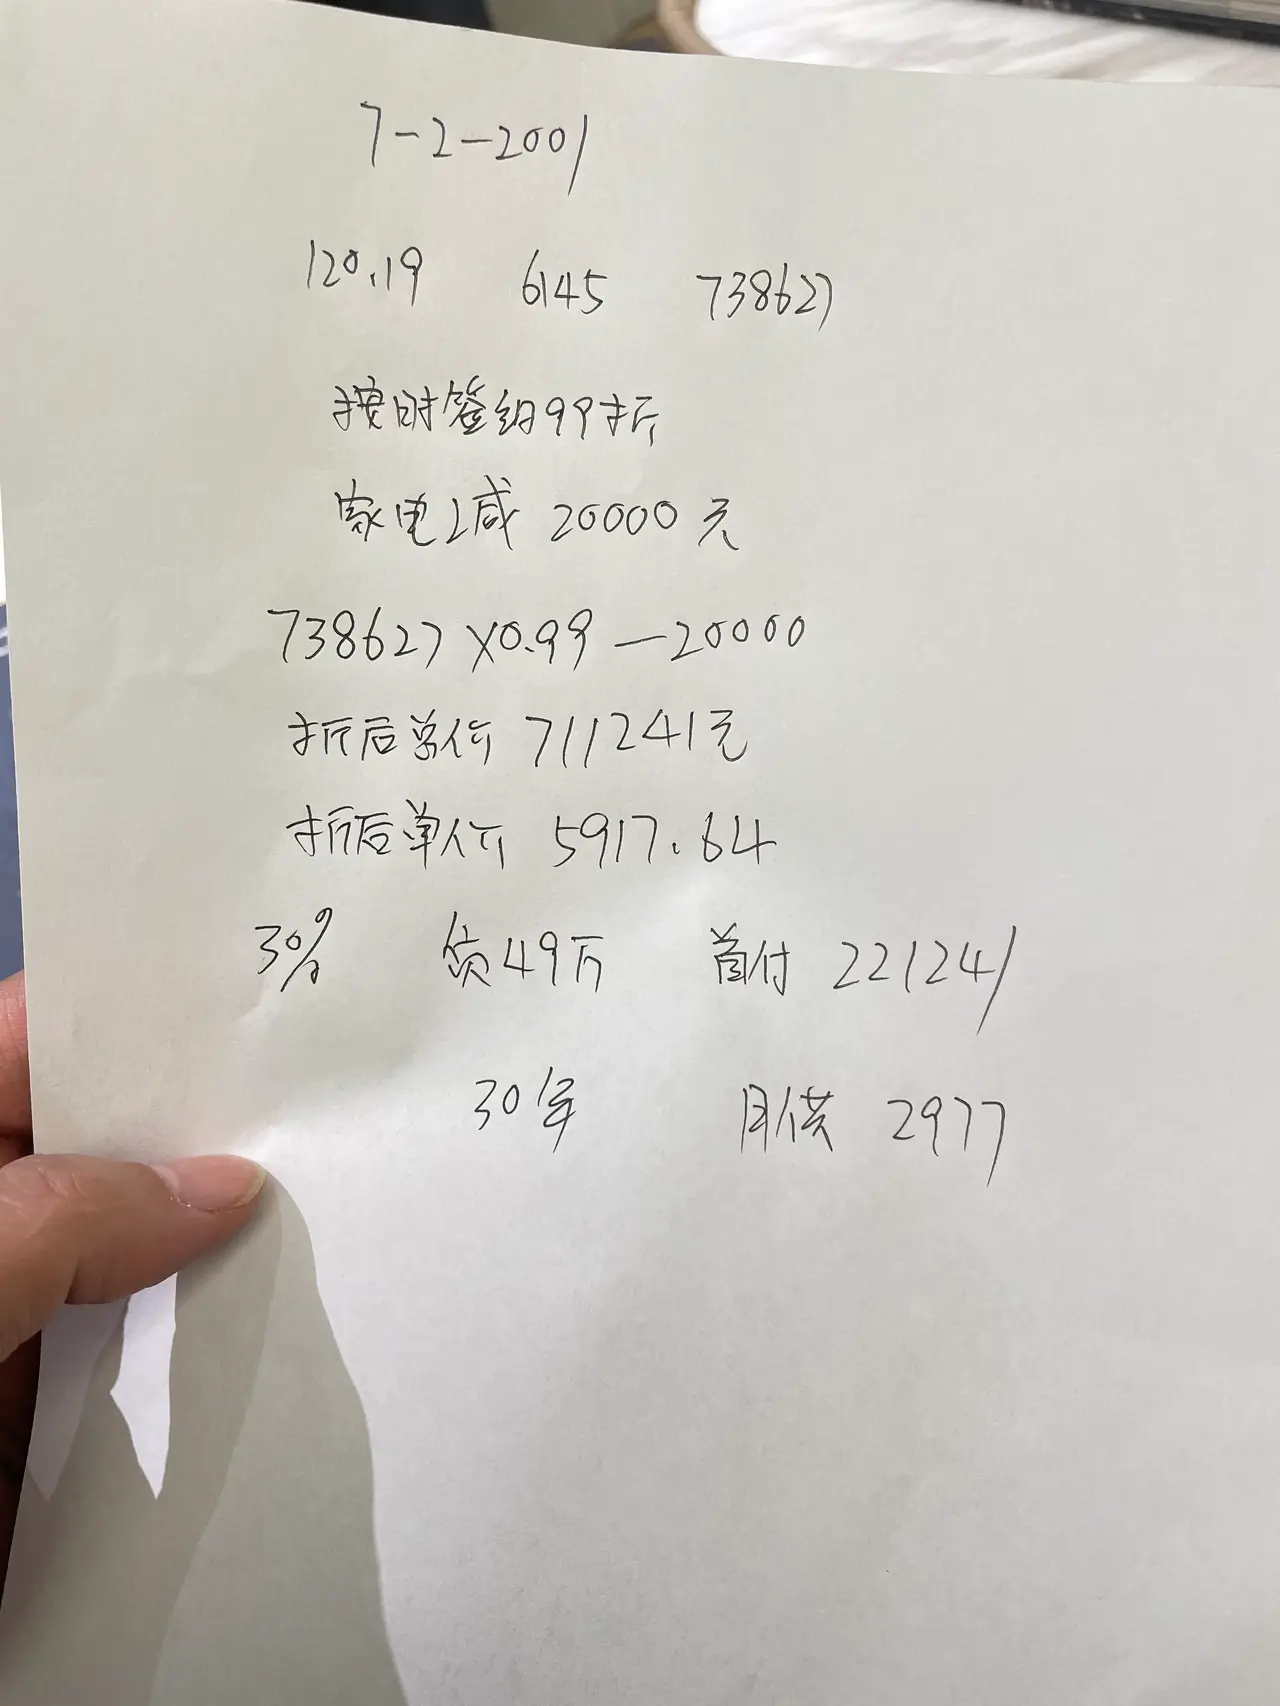 7-2-2001
120.19 6145 738627
按时签约99折
家电减 20000元
738627×0.99-20000
折后总价 711241元
折后单价 5917.64
30% 贷49万 首付 221241
30年 月供 2977